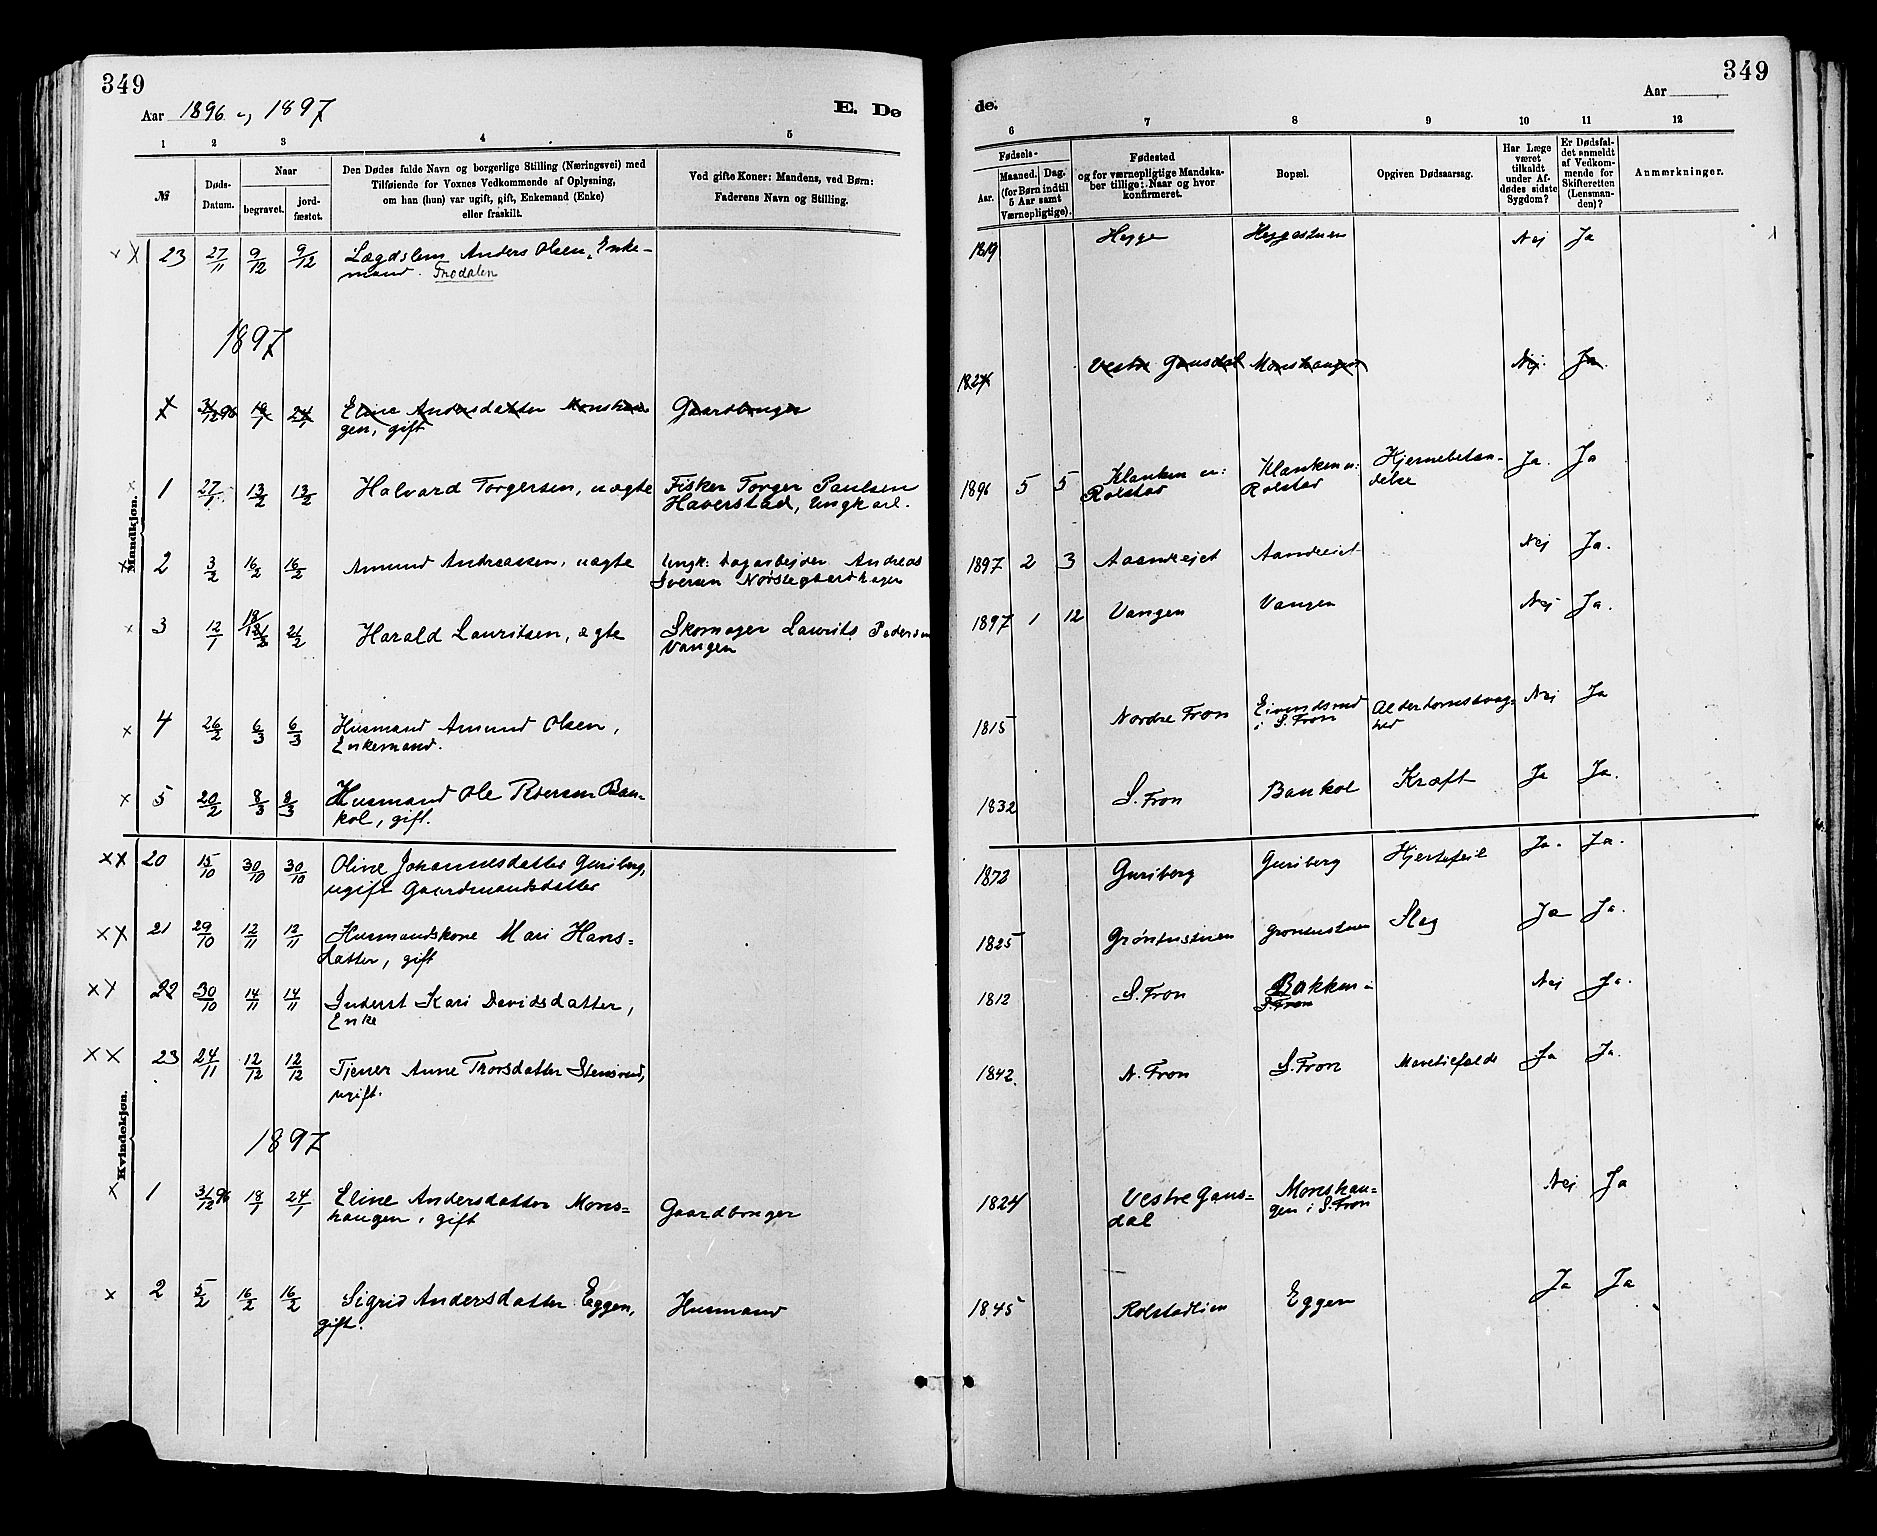 349
349
Aar 1896 og 1897
E. Dø
de.
Aar
1 2 3 4 5
6 7 8 9 10 11 12
№
Døds-
Datum.
Naar
begravet.
jord-
fæstet.
Den Dødes fulde Navn og borgerlige Stilling (Næringsvei) med
Tilføiende for Voxnes Vedkommende af Oplysning,
om han (hun) var ugift, gift, Enkemand (Enke)
eller fraskilt.
Ved gifte Koner: Mandens, ved Børn:
Faderens Navn og Stilling.
Fødsels-
Aar.
Maaned. Dag.
(for Børn indtil
5 Aar samt
Værnepligtige).
Fødested
og for værnepligtige Mandska-
ber tillige: Naar og hvor
konfirmeret.
Bopæl.
Opgiven Dødsaarsag.
Har Læge
været
tilkaldt
under Af-
dødes sidste
Sygdom?
Er Dødsfal-
det anmeldt
af Vedkom-
mende for
Skifteretten
(Lensman-
den)?
Anmærkninger.
Mandkjøn.
23 27/11 9/12 9/12 Lægdslem Anders Olsen, Enke- 1819 Hegge Heggestuen Nej Ja
mand.
1897
31/12 96 Eline Andersdatter Monshau- Gaardbruger 1824 Vestre Gausdal Monshaugen Nej. Ja.
gen, gift
1 27/1 13/2 13/2 Halvard Torgersen, uægte Fisker Torger Paulsen 1896 5 5 Klanken u: Klanken u: Hjernebetæn- Ja. Ja
Haverstad, Ungkarl. Rolstad Rolstad delse
2 3/2 16/2 16/2 Amund Andreassen, uægte Ungk: Dagarbejder Andreas 1897 2 3 Aaanreiet Aanreiet Nej Ja.
Iversen Nørstegaardhagen
3 12/1 21/2 Harald Lauritsen, ægte Skomager Laurits Pedersen 1897 1 12 Vangen Vangen Nej Ja.
Vangen
4 26/2 6/3 6/3 Husmand Amund Olsen, 1815 Nordre Fron Eivindsrud Alderdomssvag- Nej Ja
Enkemand. i S. Fron hed
5 20/2 8/3 8/3 Husmand Ole Iversen Ban- 1832 S. Fron Bankol Kræft Ja Ja.
kol, gift.
Kvindekjøn.
20 15/10 30/10 30/10 Oline Johannesdatter Guriberg, 1873 Guriberg Guriberg Hjertefeil Ja. Ja.
ugift Gaardmandsdatter
21 29/10 12/11 12/11 Husmandskone Mari Hans= 1825 Grøntustuen Grøntustuen Slag Ja Ja.
datter, gift
22 30/10 14/11 14/11 Inderst Kari Davidsdatter, 1812 S. Fron Bakken i Nej Ja.
Enke S. Fron
23 24/11 12/12 12/12 Tjener Anne Thorsdatter Stensrud, 1842. N. Fron S. Fron Ja Ja.
ugift.
1897
1 31/12 96 18/1 24/1 Eline Andersdatter Mons= Gaardbruger 1824 Vestre Gaus= Monshau= Nej Ja
haugen, gift dal gen i S. Fron
2 5/2 16/2 16/2 Sigrid Andersdatter Eggen, Husmand 1845 Rolstadlien Eggen Ja Ja
gift.